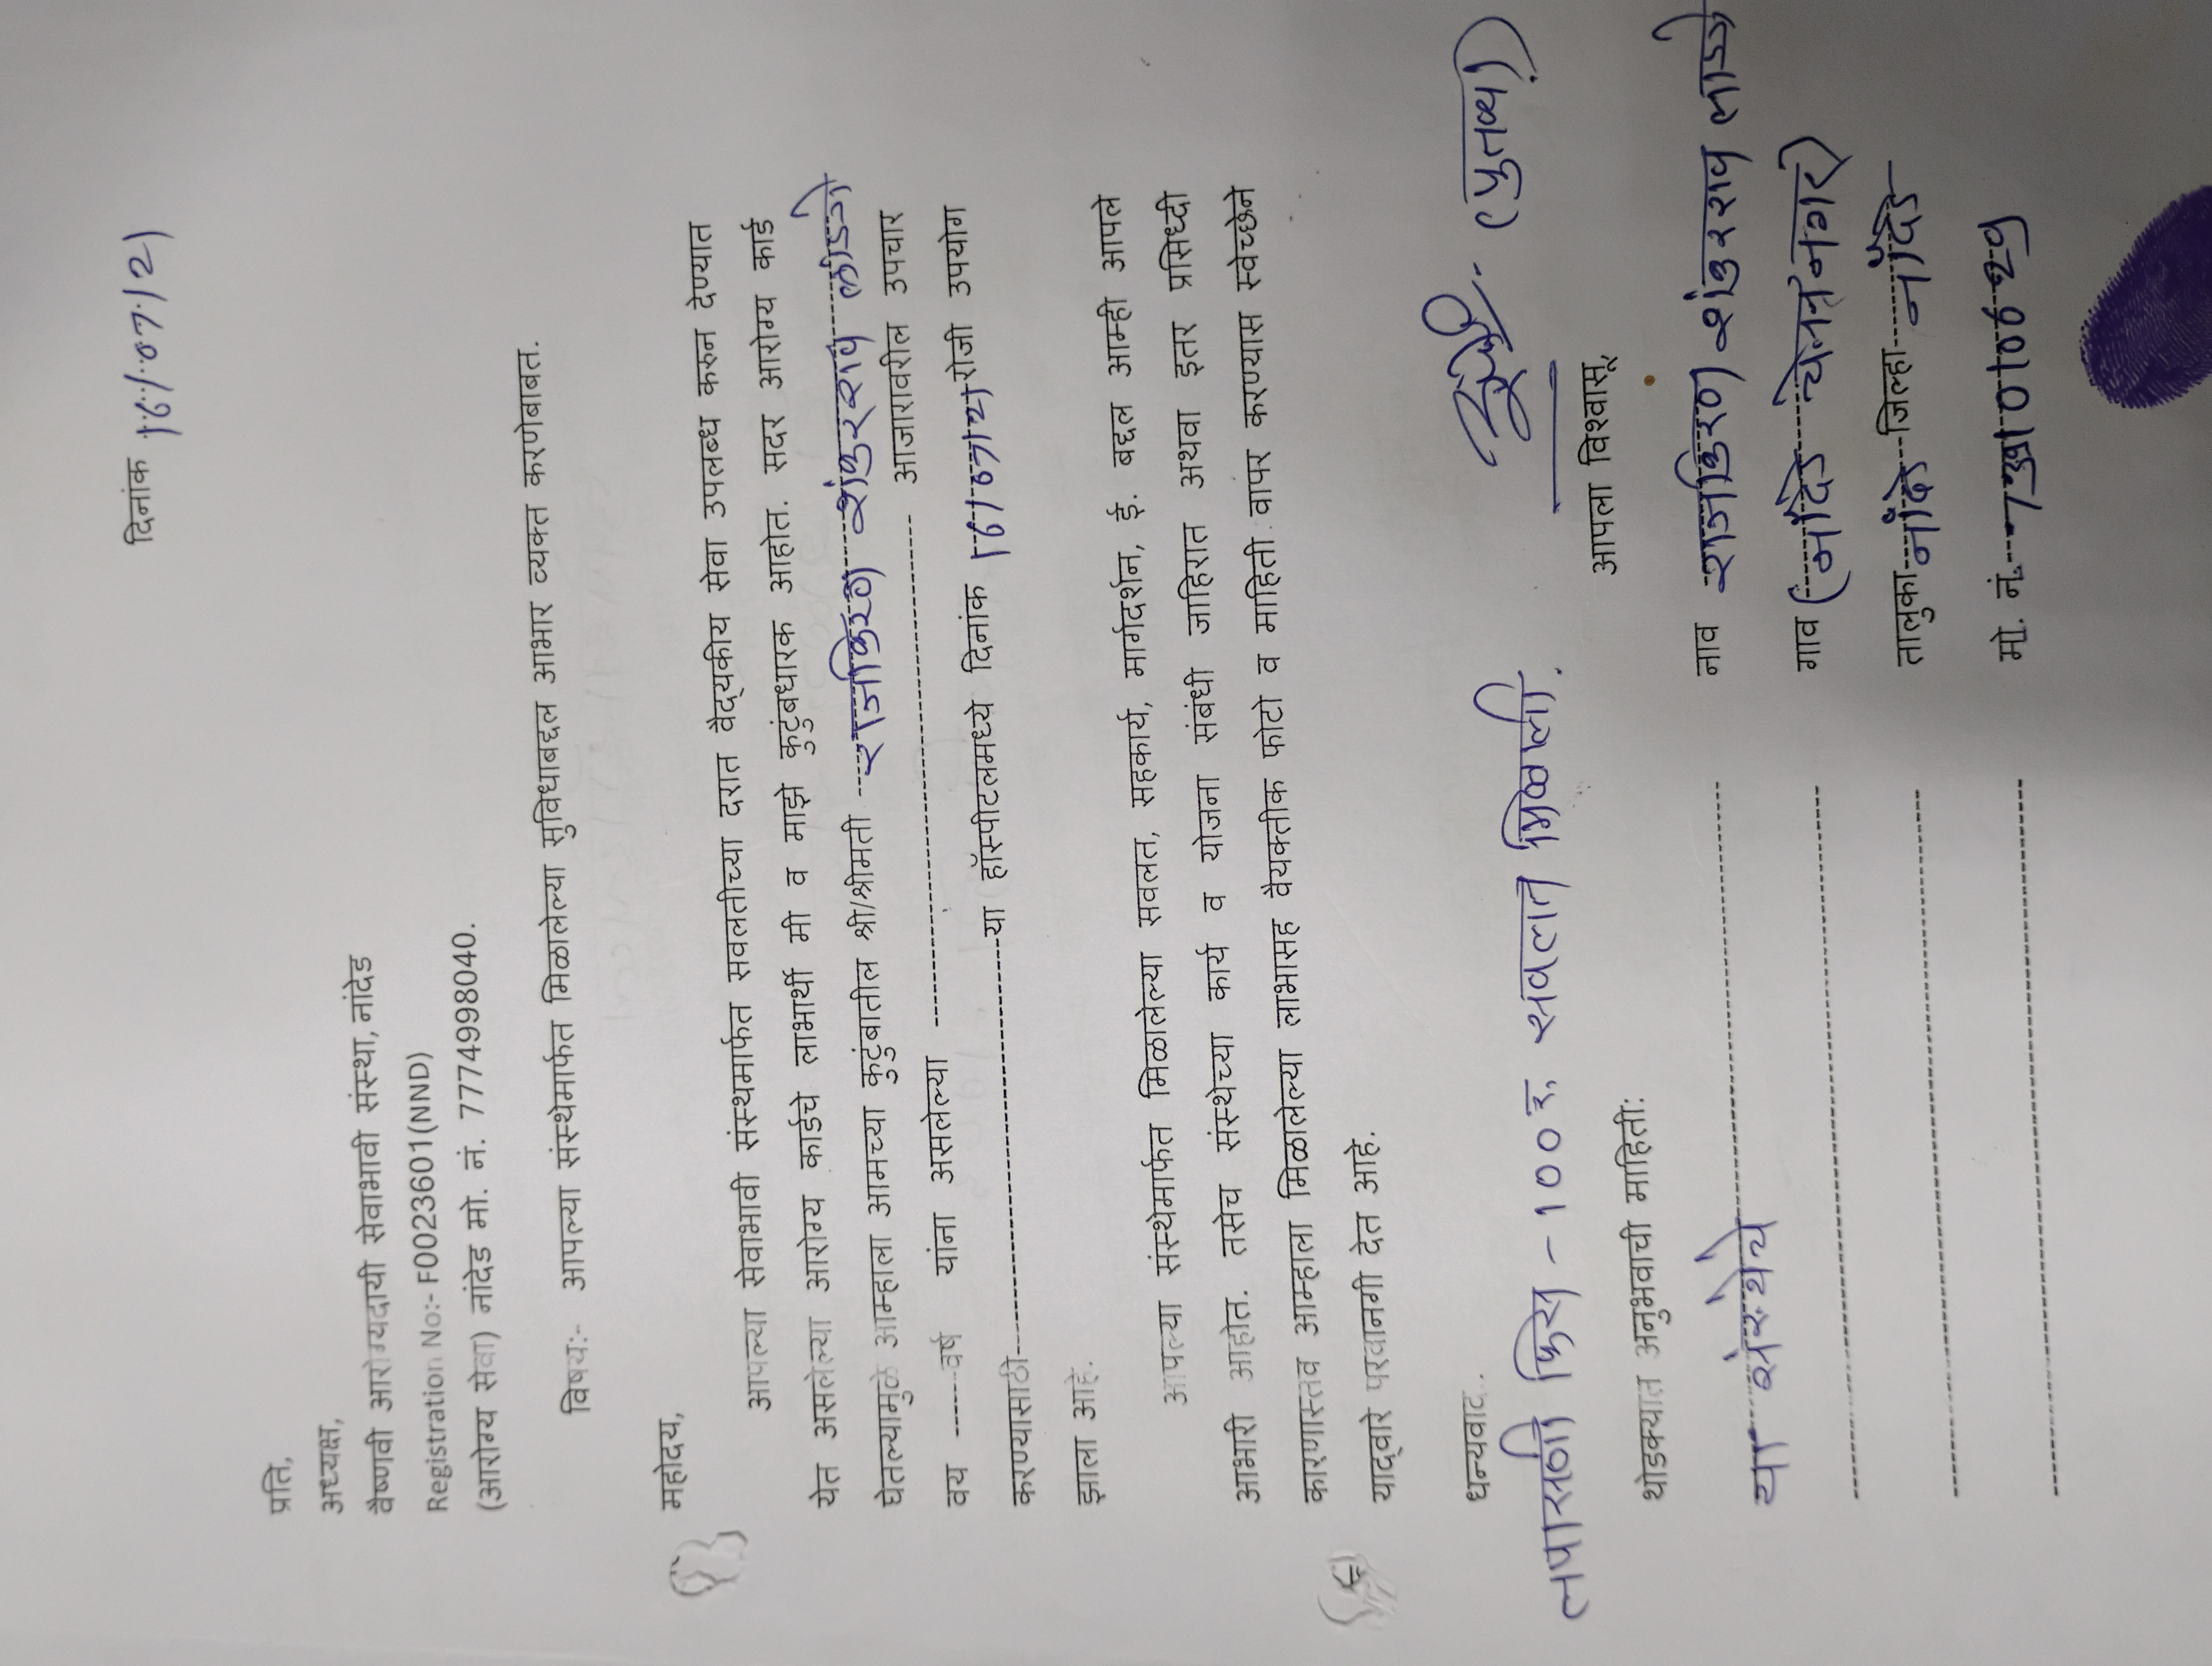 दिनांक 16/07/2
प्रति,
अध्यक्ष,
वैष्णवी आरोग्यदायी सेवाभावी संस्था, नांदेड
Registration No:- F0023601(NND)
(आरोग्य सेवा) नांदेड मो. नं. 7774998040.
विषय:- आपल्या संस्थेमार्फत मिळालेल्या सुविधाबद्दल आभार व्यक्त करणेबाबत.
महोदय,
आपल्या सेवाभावी संस्थमार्फत सवलतीच्या दरात वैद्यकीय सेवा उपलब्ध करुन देण्यात
येत असलेल्या आरोग्य कार्डचे लाभार्थी मी व माझे कुटुंबधारक आहोत. सदर आरोग्य कार्ड
घेतल्यामुळे आम्हाला आमच्या कुटुंबातील श्री/श्रीमती राजकिरण शंकरराव लाडो
वय ------वर्ष यांना असलेल्या ------ आजारावरील उपचार
करण्यासाठी------या हॉस्पीटलमध्ये दिनांक 16/07/2 रोजी उपयोग
झाला आहे.
आपल्या संस्थेमार्फत मिळालेल्या सवलत, सहकार्य, मार्गदर्शन, ई. बद्दल आम्ही आपले
आभारी आहोत. तसेच संस्थेच्या कार्य व योजना संबंधी जाहिरात अथवा इतर प्रसिध्दी
कारणास्तव आम्हाला मिळालेल्या लाभासह वैयक्तीक फोटो व माहिती वापर करण्यास स्वेच्छेने
याद्वारे परवानगी देत आहे.
धन्यवाद..
(पुतण्या)
तपासणी फिस - 100 रु. सवलत मिळाली.
आपला विश्वासू
थोडक्यात अनुभवाची माहिती:
या संस्थेचे
नाव राजकिरण शंकरराव लाडो
गाव (नांदेड
तालुका नांदेड जिल्हा नांदेड
मो. नं.